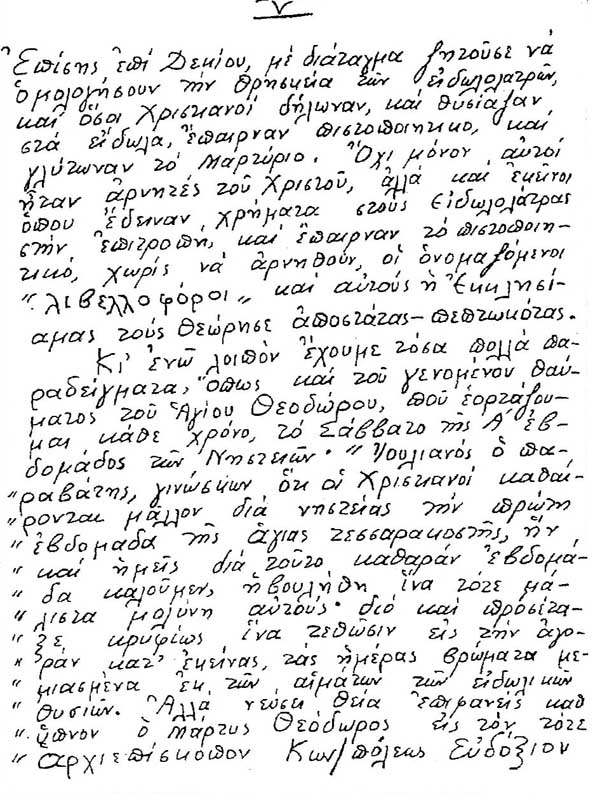 V
Ἐπίσης ἐπί Δεκίου, μέ διάταγμα ζητοῦσε νά
ὁμολογήσουν τήν θρησκεία τῶν εἰδωλολατρῶν,
καί ὅσοι Χριστιανοί δήλωναν, καί θυσίαζαν
στά εἴδωλα, ἔπαιρναν πιστοποιητικο, καί
γλύτωναν τό μαρτύριο. Ὄχι μόνον αὐτοί
ἦταν ἀρνητές τοῦ Χριστοῦ, ἀλλά καί ἐκεῖνοι
ὅπου ἔδειναν χρήματα στούς εἰδωλολάτρας
στήν ἐπιτροπή, καί ἔπαιρναν τό πιστοποιη-
τικό, χωρίς νά ἀρνηθοῦν, οἱ ὀνομαζόμενοι
"λιβελλοφόροι" καί αὐτούς ἡ Ἐκκλησί-
α μας τούς θεώρησε ἀποστάτας-πεπτωκότας.
Κι' ἐνῶ λοιπόν ἔχουμε τόσα πολλά πα-
ραδείγματα, ὅπως καί τοῦ γενομένου θαύ-
ματος τοῦ Ἁγίου Θεοδώρου, πού ἑορτάζου-
με κάθε χρόνο, τό Σάββατο τῆς Α' ἑβ-
δομάδος τῶν Νηστειῶν. "Ἰουλιανός ὁ πα-
"ραβάτης, γινώσκων ὅτι οἱ Χριστιανοί καθαί-
"ρονται μᾶλλον διά νηστείας τήν πρώτη
"ἑβδομάδα τῆς ἁγίας τεσσαρακοστῆς, ἥν
"καί ἡμεῖς διά τοῦτο καθαράν ἑβδομά-
"δα καλοῦμεν, ἠβουλήθη ἵνα τότε μά-
"λιστα μολύνη αὐτούς· διό καί προσέτα-
"ξε κρυφίως ἵνα τεθῶσιν εἰς τήν ἀγο-
"ράν κατ' ἐκείνας τάς ἡμέρας βρώματα με-
"μιασμένα ἐκ τῶν αἱμάτων τῶν εἰδωλικῶν
"θυσιῶν. Ἀλλά νεύσει θεία ἐπιφανείς καθ
"ὕπνον ὁ Μάρτυς Θεόδωρος εἰς τόν τότε
"ἀρχιεπίσκοπον Κων/πόλεως Εὐδόξιον